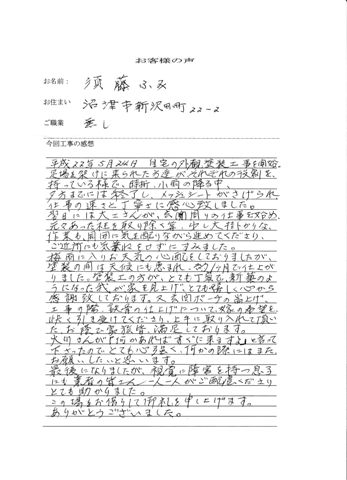 お客様の声
お名前: 須藤ふみ
お住まい 沼津市新沢田町22-2
ご職業 無し
今回工事の感想
平成22年5月24日 自宅の外観塗装工事を開始
足場を架けに来られた方達がそれぞれの役割を
持っている様で、時折、小雨の降る中、
夕方までには終了し、メッシュシートがさげられ
仕事の速さと丁寧さに感心致しました。
翌日には大工さんが、玄関周りの仕事を始め、
元であった柱を取り除く等、少し大掛かりな、
作業も、周囲に気を配りながら進めてくださり、
ご近所にも気兼ねをせずにすみました。
梅雨に入りお天気の心配をしておりましたが、
塗装の間は天候にも恵まれ、約1ヶ月で仕上が
りました。塗装工の方が、とても丁寧で、新築のよ
うになった我が家を見上げ、とても嬉しく心から
感謝致しております。又玄関ポーチの嵩上げ、
工事の際、鉄骨の仕上げについて、嫁の希望を
快く引き受けてくださり、上手に取り入れて頂い
た、お陰と家族皆、満足しております。
大川さんが「何かあればすぐに来ますよ」と言って
下さったのでとても心強く、何かの際にはまた、
お願いしたいと思います。
最後になりましたが、視覚に障害を持つ息子
にも業者の皆さん一人一人がご配慮くださり
とても助かりました。
この場をお借りして御礼を申し上げます。
ありがとうございました。